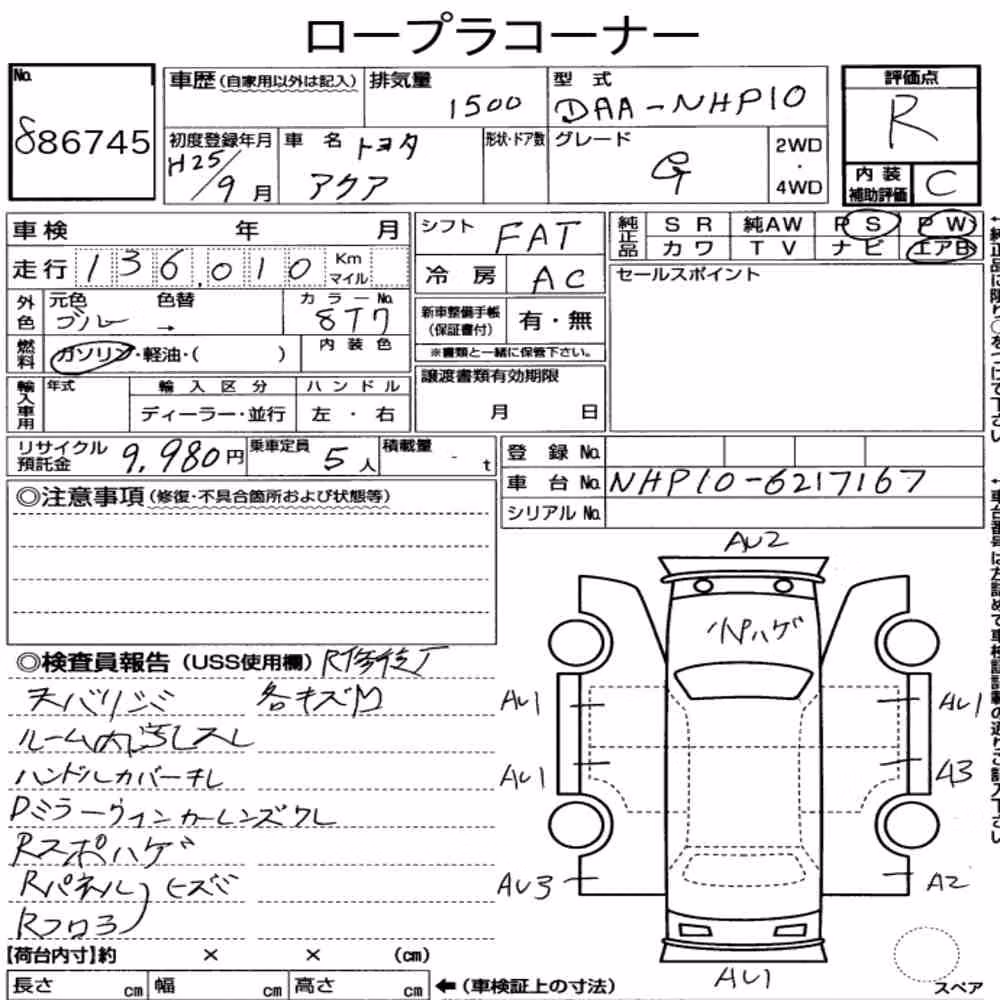 ロープラコーナー
No.
886745
車歴(自家用以外は記入)
排気量
1500
型式
DAA-NHP10
評価点
R
初度登録年月
H25/9月
車名
トヨタ
アクア
形状・ドア数
グレード
G
2WD
・
4WD
内装
補助評価
C
車検 年 月
シフト
FAT
純正品
SR 純AW PS PW
カワ TV ナビ エアB
走行 136,010 Km
マイル
冷房 AC
セールスポイント
外色
元色 色替
ゴルー →
カラーNo.
8T7
新車整備手帳
(保証書付)
有・無
燃料
ガソリン・軽油・( )
内装色
※書類と一緒に保管下さい。
輸入車用
年式
輸入区分
ディーラー・並行
ハンドル
左・右
譲渡書類有効期限
月 日
リサイクル
預託金
9,980円
乗車定員
5人
積載量
- t
登録No.
車台No. NHP10-6217167
シリアルNo.
◎注意事項(修復・不具合箇所および状態等)
◎検査員報告(USS使用欄)
天バリジミ 各キズM
ルーム内汚レスレ
ハンドルカバーチレ
Dミラーウインカーレンズワレ
Rスポハゲ
Rパネル
ヒズミ
Rフロア
AU2
小Pハゲ
AU1
AU1
AU1
A3
AU3
A2
AU1
スペア
【荷台内寸】約 × × (cm)
長さ cm 幅 cm 高さ cm ←(車検証上の寸法)
←純正品に限り○をつけて下さい
←車台番号は左詰めで車検証記載の通りご記入下さい